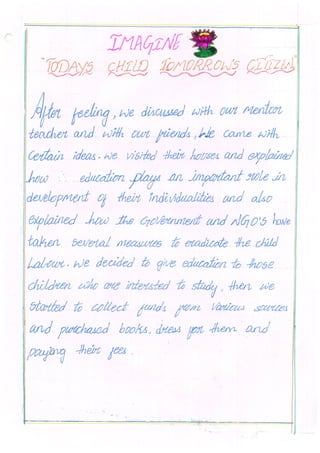 IMAGINE
"TODAYS CHILD TOMORROWS CITIZEN"
After feeling, we discussed with our mentor
teacher and with our friends, We came with
certain ideas. We visited their houses and explained
how education plays an important role in
development of their individualities and also
explained how the Government and NGO's have
taken several measures to eradicate the child
Labour. We decided to give education to those
children who are intersted to study, then we
started to collect funds from various sources
and purchased books, dress for them and
paying their fees.